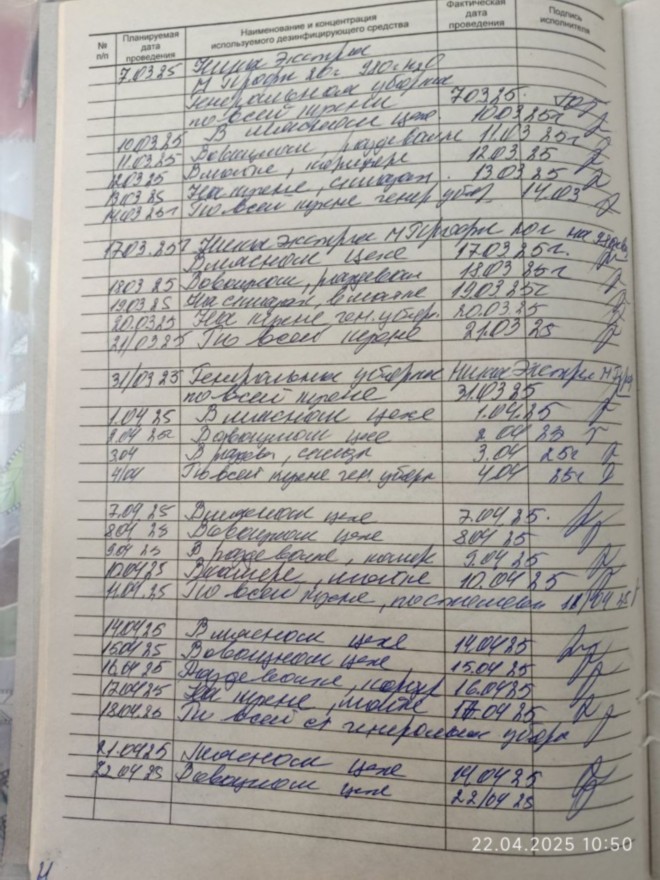 № п/п Планируемая дата проведения Наименование и концентрация используемого дезинфицирующего средства Фактическая дата проведения Подпись исполнителя
7.03.25 Ника Экстра
М Профи 20г
Генеральная уборка
по всей кухни 7 03 25.
10.03.25 В мясном цехе. 10.03.25г
11.03.25 В овощном, раздевалк 11.03 25г
12.03.25 В моечн, коридоре 12.03.25
13.03.25 На кухне, складах. 13 03 25
14.03.25г По всей кухне генер убор 14.03
17.03.25г Ника Экстра М Профи 20г на
В мясном цехе 17.03 25г.
18.03 25 В овощном, раздевал 18.03 25г
19.03 25 На складах, в моечне 19.03.25г
20.03.25 На кухне ген. убор. 20.03.25
21/03.25 По всей кухне 21.03 25
31/03 25 Генеральная уборка Ника Экстра М Проф
по всей кухне 31.03.25
1.04 25 В мясном цехе 1.04.25
2.04 25г В овощном цехе 2 04 25
3.04 В раздев, склад 3.04 25г
4/04 По всей кухне ген. уборк 4.04 25г
7.04 25 В мясном цехе 7.04.25.
8.04 25 В овощном цехе 8.04 25
9.04 25 В раздевалке, 9.04 25
10.04.25 10.04 25
11.04.25 По всей кухне, 11/04 25г
14.04.25 В мясном цехе 14.04.25
15.04 25 В овощном цехе 15.04 25
16.04.25 Раздевалке, корид 16.04.25
17.04.25 На кухне, мойке 17.04 25
18.04.25 По всей ст генеральная уборка
21.04.25 Мясном цехе 19.04.25
22.04 25 В овощном цехе 22/04 25
22.04.2025 10:50